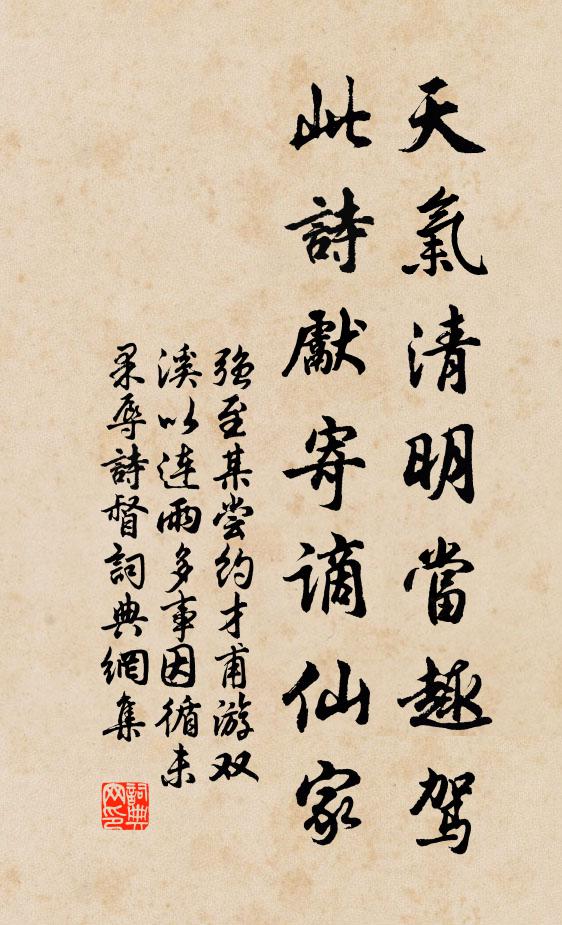 天氣清明當趣駕
此詩獻寄謫仙家
强至某尝约才甫游双
溪以连雨多事因循未
果辱詩督詞典網集
詞典
网印